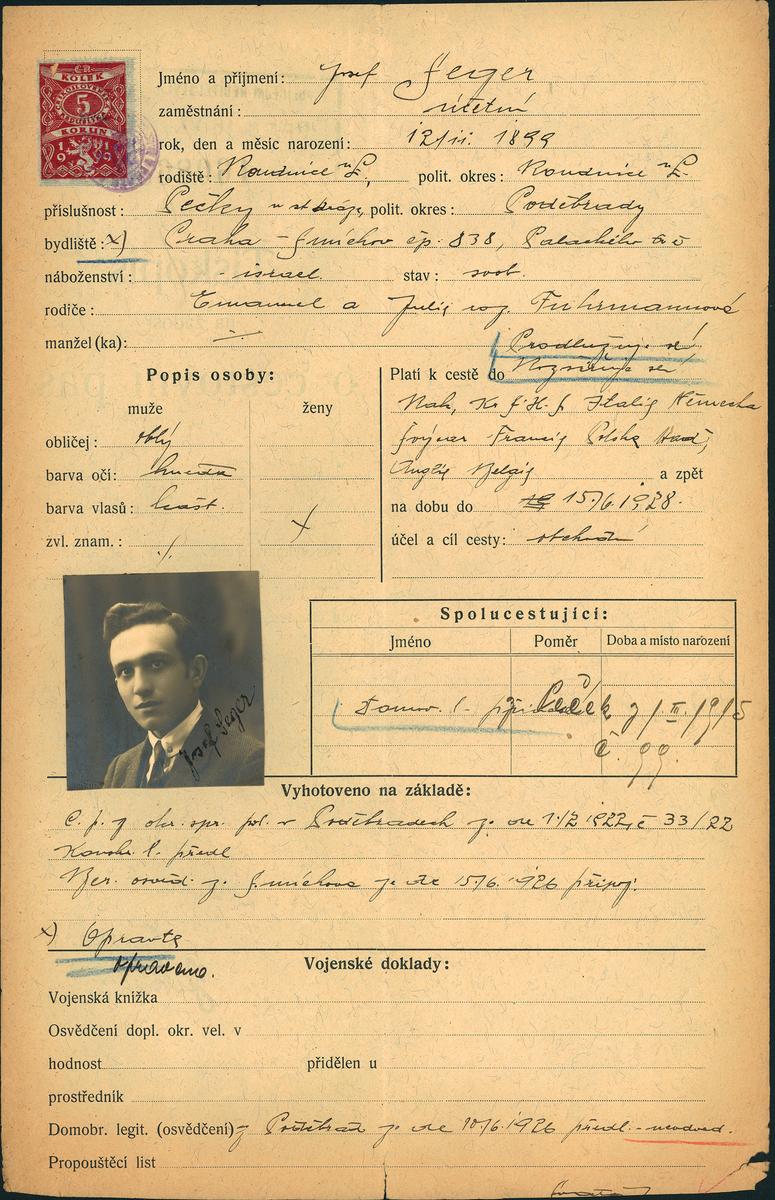 KOLEK
5
KORUN
1919
Jméno a příjmení: Josef Seger
zaměstnání: účetní
rok, den a měsíc narození: 12/II. 1899
rodiště: Roudnice n. L., polit. okres: Roudnice n. L.
příslušnost: Pečky polit. okres: Poděbrady
bydliště: x) Praha - Smíchov čp. 838, Palackého
náboženství: israel. stav: svob.
rodiče: Emanuel a Julie roz. Fuhrmannová
manžel (ka): ÷
Prodlužuje se
Rozšiřuje se
Popis osoby:
muže ženy
obličej: oblý
barva očí: hnědá
barva vlasů: kašt.
zvl. znam.: ·/.
Platí k cestě do
Rak, Kr. S. H. S. Italie Německa
Švýcar Francie Polska
Anglie Belgie a zpět
na dobu do 15/6. 1928.
účel a cíl cesty: obchodní
Josef Seger
Spolucestující:
Jméno Poměr Doba a místo narození
Domov. l. Peček z / III. 1915
č. 99.
Vyhotoveno na základě:
C. p. z okr. spr. pol. v Poděbradech ze dne 1./2 1922, č 33/22
l. předl
osvěd. z Smíchova ze dne 15/6. 1926 připoj.
x) Opravte
opraveno.
Vojenské doklady:
Vojenská knížka
Osvědčení dopl. okr. vel. v
hodnost přidělen u
prostředník
Domobr. legit. (osvědčení) z Poděbrad ze dne 10/6. 1926 předl. - neodved.
Propouštěcí list